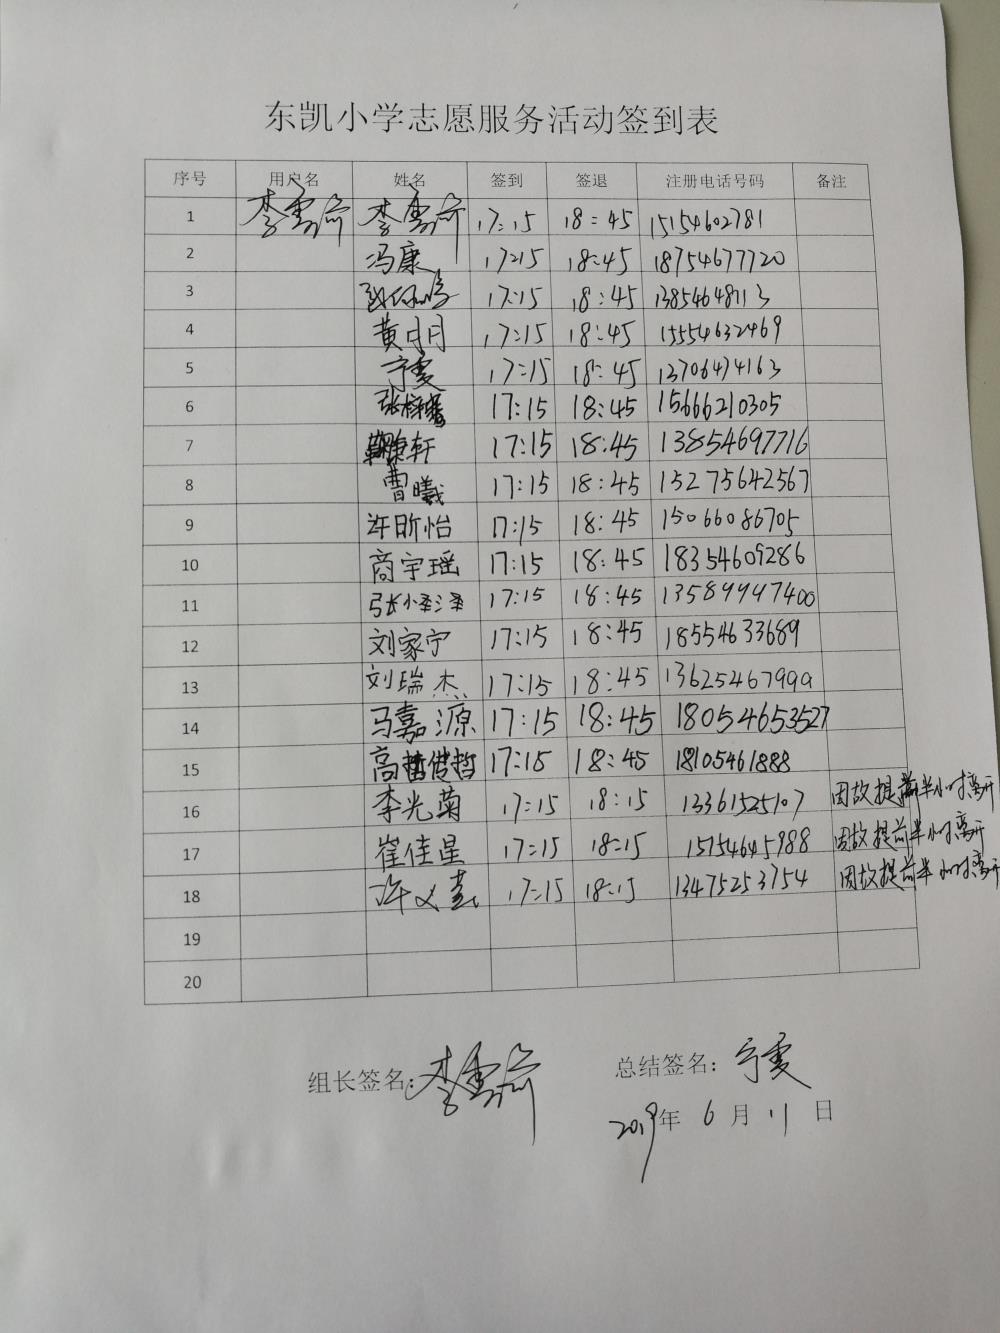 东凯小学志愿服务活动签到表
序号 用户名 姓名 签到 签退 注册电话号码 备注
1 李 李 17:15 18:45 15154602781
2 冯康 17:15 18:45 18754677720
3 17:15 18:45 13854648113
4 黄月月 17:15 18:45 15554632469
5 宁雯 17:15 18:45 13706474163
6 张 17:15 18:45 15666210305
7 轩 17:15 18:45 13854697716
8 曹曦 17:15 18:45 15275642567
9 许昕怡 17:15 18:45 15066086705
10 商宇瑶 17:15 18:45 18354609286
11 17:15 18:45 13589947400
12 刘家宁 17:15 18:45 18554633689
13 刘瑞杰 17:15 18:45 13625467999
14 马嘉源 17:15 18:45 18054653527
15 高 17:15 18:45 18105461888
16 李光菊 17:15 18:15 13361525107 因故提前半小时离开
17 崔佳星 17:15 18:15 15154645988 因故提前半小时离开
18 许义 17:15 18:15 13475253754 因故提前半小时离开
19
20
组长签名：李 总结签名：宁雯
2019年 6 月 11 日